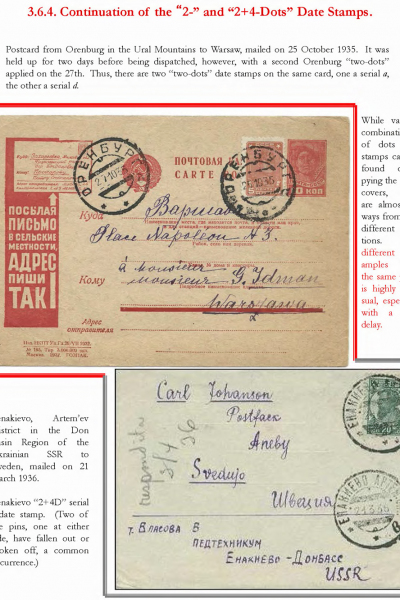 3.6.4. Continuation of the "2-" and "2+4-Dots" Date Stamps.
Postcard from Orenburg in the Ural Mountains to Warsaw, mailed on 25 October 1935. It was
held up for two days before being dispatched, however, with a second Orenburg "two-dots"
applied on the 27th. Thus, there are two "two-dots" date stamps on the same card, one a serial a,
the other a serial d.
While va
combinati
of dots
stamps ca
found o
pying the
covers,
are almos
ways from
different
tions.
different
amples
the same
is highly
sual, espe
with a
delay.
ОРЕНБУРГ
ОРЕНБУРГ
ПОЧТОВАЯ
CARTE
КОП
ПОСЫЛАЯ
ПИСЬМО
В СЕЛЬСКИЕ
МЕСТНОСТИ,
АДРЕС
ПИШИ
ТАК
Куда Варшава
Place Napoleon N 3.
Кому à Monsieur
Monsieur G. Idman
Warszawa
Адрес
отправителя
enakievo, Artem'ev
istrict in the Don
asin Region of the
krainian SSR to
weden, mailed on 21
arch 1936.
enakievo "2+4D" serial
date stamp. (Two of
e pins, one at either
de, have fallen out or
oken off, a common
currence.)
Carl Johanson
Postfack
Aneby
Svedujo
Швеция
respondita
3/4 36
т. Власова Б
ПЕДТЕХНИКУМ
ЕНАКИЕВО-ДОНБАСС
USSR
20
ЕНАКИЕВО
21.3.36